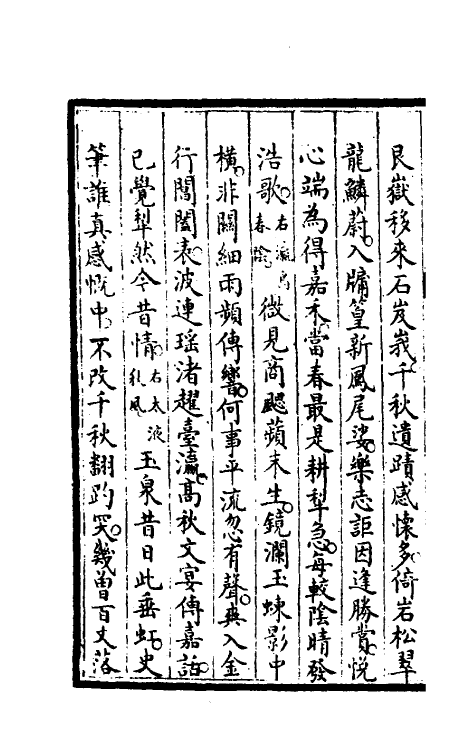 艮嶽移來石岌峩千秋遺蹟感懷多倚岩松翠
龍鱗蔚入牖篁新鳳尾娑樂志詎因逢勝賞悅
心端為得嘉禾當春最是耕犂急每較陰晴發
浩歌右瀛島春陰微見商飈蘋末生鏡瀾玉蝀影中
橫非關細雨頻傳響何事平流忽有聲爽入金
行閶闔表波連瑤渚趯臺瀛高秋文宴傳嘉話
已覺犁然今昔情右太液秋風玉泉昔日此垂虹史
筆誰真感慨中不改千秋翻趵突幾曾百丈落